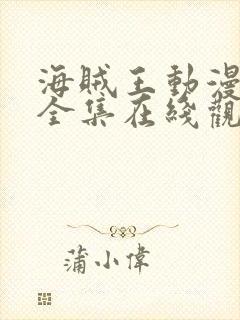 海賊王動漫
全集在綫觀
蒲小偉